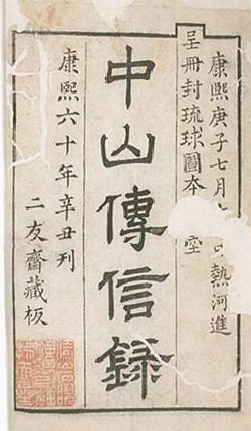 康熙庚子七月
熱河進
呈冊封琉球圖本
中山傳信錄
康熙六十年辛丑刊
二友齋藏板